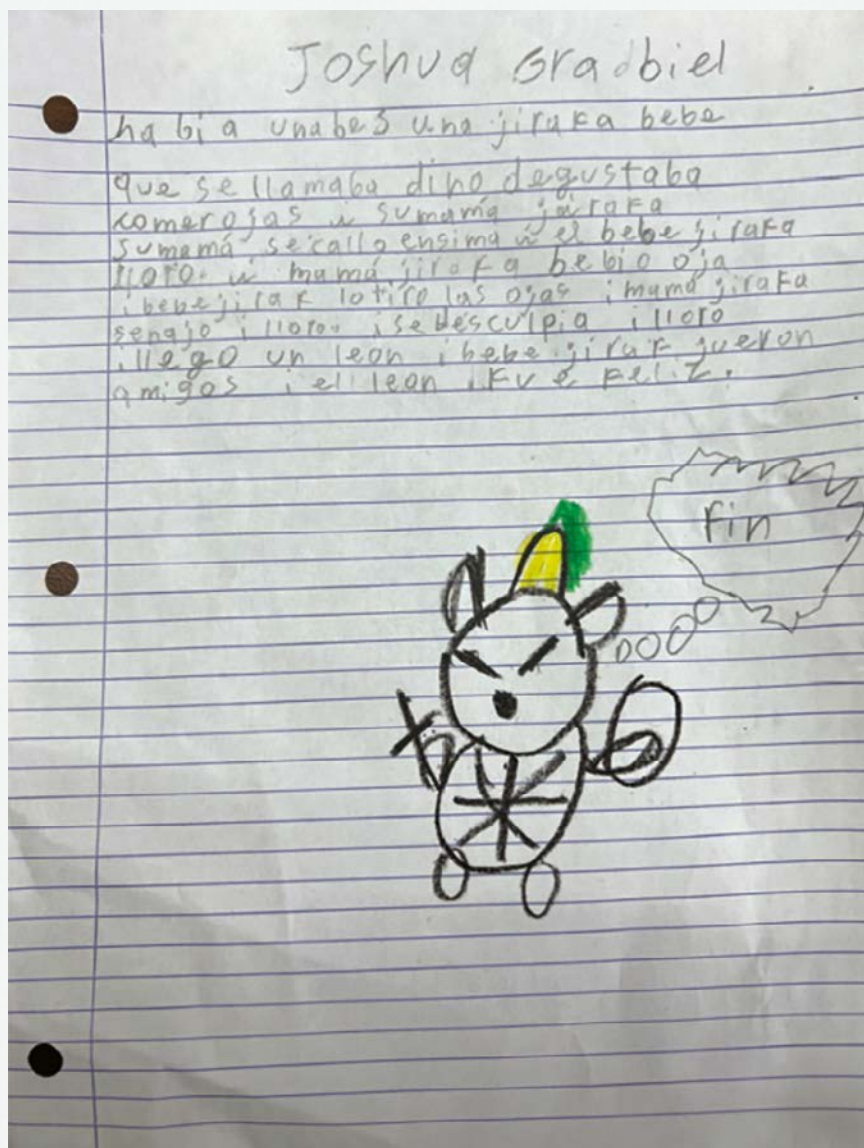 Joshua Gradbiel
ha bi a unabes una jirafa bebe
que se llamaba dino degustaba
comerojas i sumamá jairafa
sumamá secallo ensima i el bebe jirafa
lloro. i mamá jirafa bebio oja
i bebejiraf lotiro las ojas i mamá jirafa
senajo i lloro. i sebesculpia i lloro
i llego un leon i bebe jiraf fueron
amigos i el leon i fu e feliz.
fin